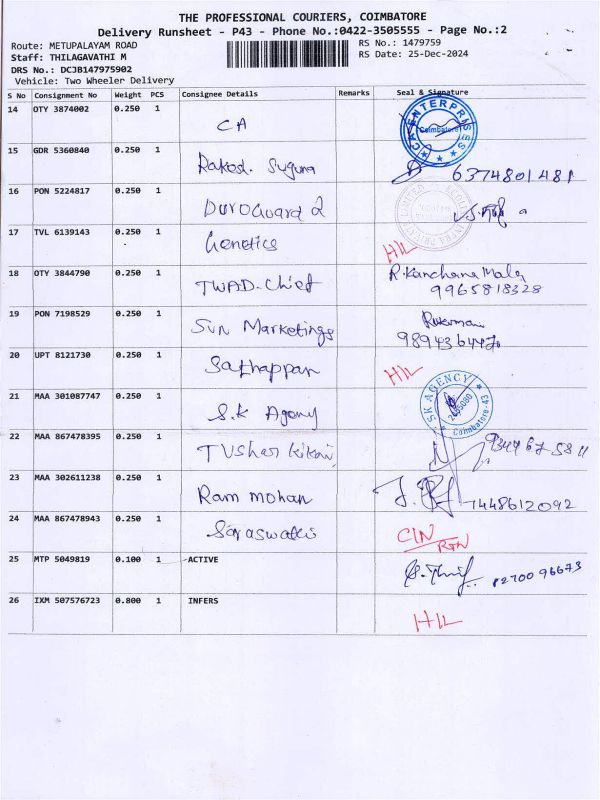 THE PROFESSIONAL COURIERS, COIMBATORE
Delivery Runsheet - P43 - Phone No.:0422-3505555 - Page No.:2
Route: METUPALAYAM ROAD
RS No.: 1479759
Staff: THILAGAVATHI M
RS Date: 25-Dec-2024
DRS No.: DCJB147975902
Vehicle: Two Wheeler Delivery
S No Consignment No Weight PCS Consignee Details Remarks Seal & Signature
14 OTY 3874002 0.250 1 CA
CA ENTERPRISES Coimbatore
15 GDR 5360840 0.250 1 Suguna
6374801481
16 PON 5224817 0.250 1 DuroGuard 2
17 TVL 6139143 0.250 1 Genetics
H/L
18 OTY 3844790 0.250 1 TWAD-Chief
R. Kanchana Mala
9965818328
19 PON 7198529 0.250 1 Sun Marketings
20 UPT 8121730 0.250 1 Sathappan
H/L
21 MAA 301087747 0.250 1 S.K Agency
SK AGENCY Coimbatore-43
22 MAA 867478395 0.250 1 Tushar
23 MAA 302611238 0.250 1 Ram mohan
7448612092
24 MAA 867478943 0.250 1 Saraswathi
C/N
RTN
25 MTP 5049819 0.100 1 ACTIVE
26 IXM 507576723 0.800 1 INFERS
H/L